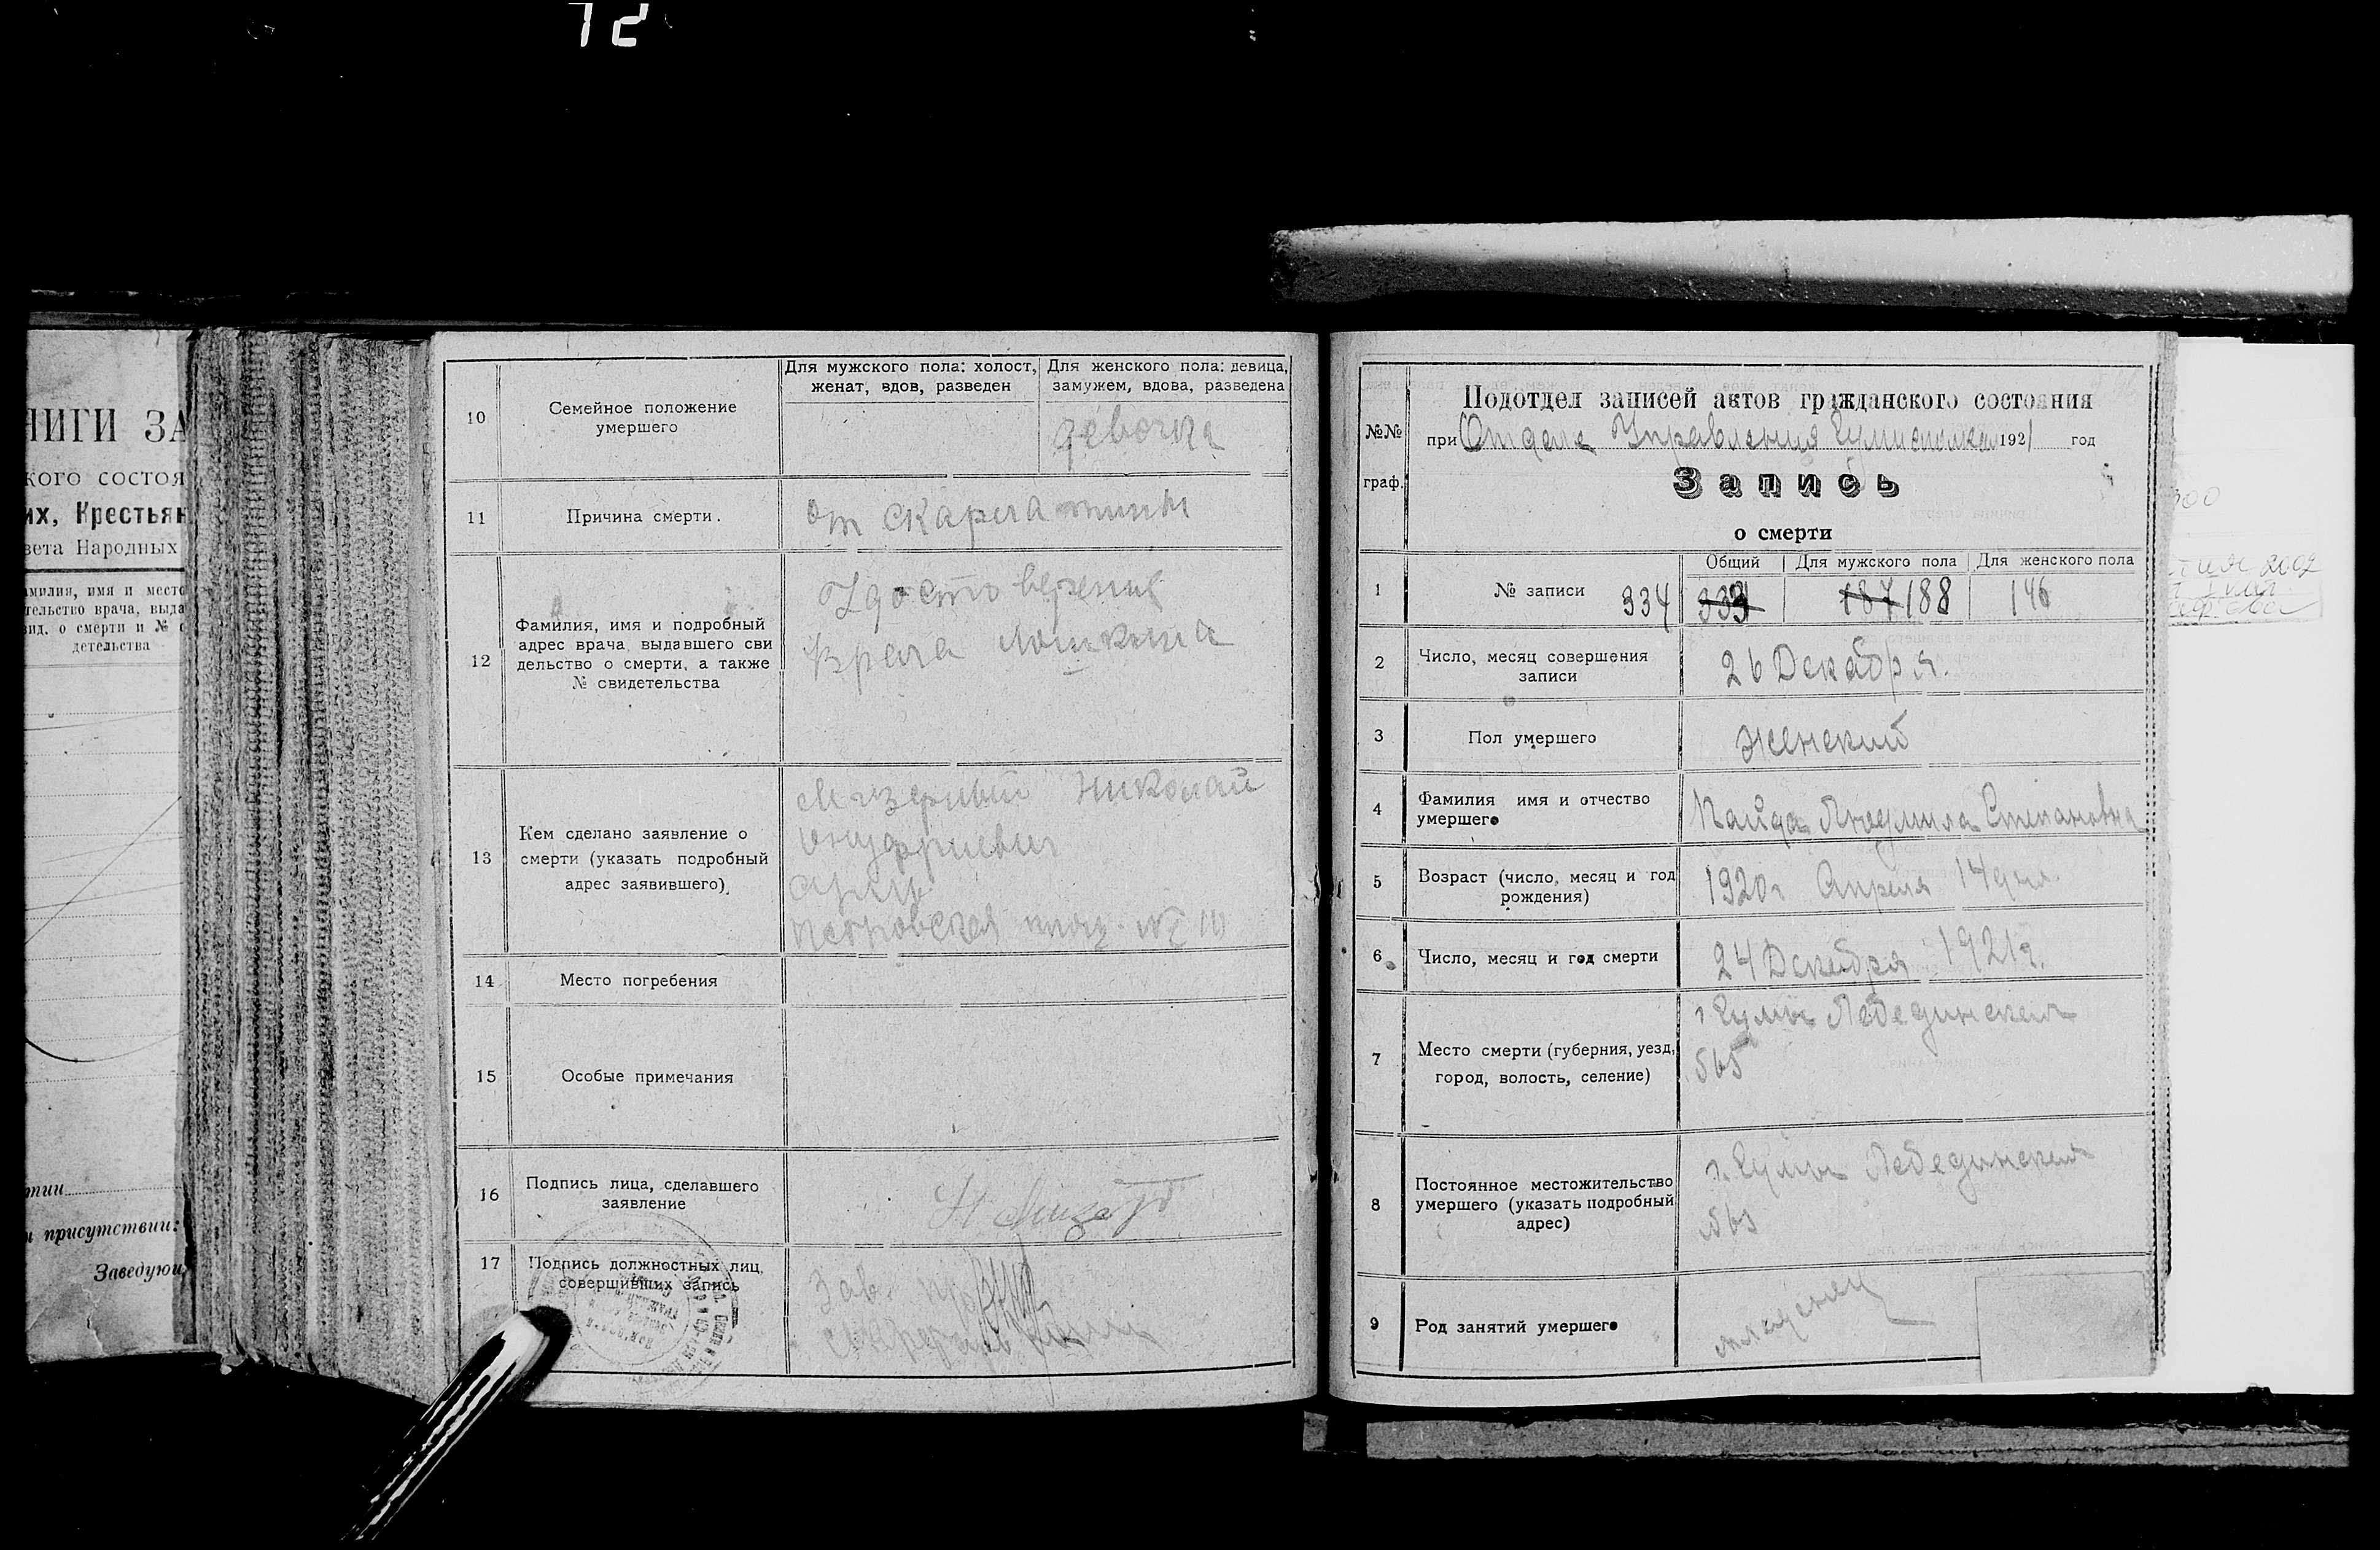 72
НИГИ ЗА
кого состоя
их, Крестьян
вета Народных
амилия, имя и место
тельство врача, выда
вид. о смерти и №
детельства
присутствии:
Заведую
10
Семейное положение
умершего
Для мужского пола: холост,
женат, вдов, разведен
Для женского пола: девица,
замужем, вдова, разведена
девочка
11
Причина смерти.
от скарлатины
12
Фамилия, имя и подробный
адрес врача, выдавшего сви
дельство о смерти, а также
№ свидетельства
Удостоверение
врача
13
Кем сделано заявление о
смерти (указать подробный
адрес заявившего)
Мизерный Николай
Онуфриевич
Петровская площ. № 10
14
Место погребения
15
Особые примечания
16
Подпись лица, сделавшего
заявление
17
Подпись должностных лиц,
совершивших запись
Зав.
Секретарь
№№
граф.
Подотдел записей актов гражданского состояния
при Отделе Управления 1921 год
Запись
о смерти
1
№ записи
334
Общий
333
Для мужского пола
187 188
Для женского пола
146
2
Число, месяц совершения
записи
26 Декабря.
3
Пол умершего
Женский
4
Фамилия имя и отчество
умершего
Пайда Людмила Степановна
5
Возраст (число, месяц и год
рождения)
1920 г Апреля 14 дня.
6
Число, месяц и год смерти
24 Декабря 1921 г.
7
Место смерти (губерния, уезд,
город, волость, селение)
г Сумы Лебединская
565
8
Постоянное местожительство
умершего (указать подробный
адрес)
г. Сумы Лебединская
565
9
Род занятий умершего
младенец